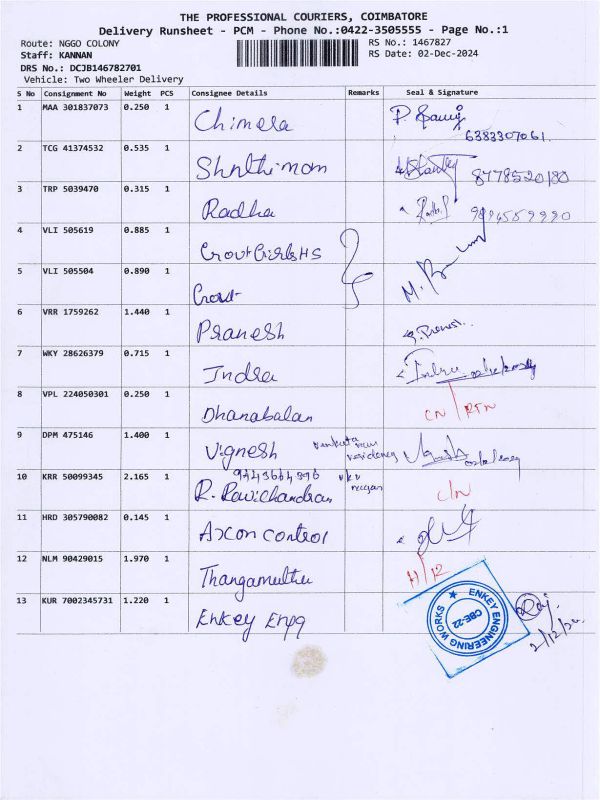 THE PROFESSIONAL COURIERS, COIMBATORE
Delivery Runsheet - PCM - Phone No.:0422-3505555 - Page No.:1
Route: NGGO COLONY RS No.: 1467827
Staff: KANNAN RS Date: 02-Dec-2024
DRS No.: DCJB146782701
Vehicle: Two Wheeler Delivery
S No Consignment No Weight PCS Consignee Details Remarks Seal & Signature
1 MAA 301837073 0.250 1 Chimera
6383307061
2 TCG 41374532 0.535 1 Shnthimam
8778520180
3 TRP 5039470 0.315 1 Radha
4 VLI 505619 0.885 1 Govt Girls HS
5 VLI 505504 0.890 1 Govt
6 VRR 1759262 1.440 1 Pranesh
7 WKY 28626379 0.715 1 Indra Indra
8 VPL 224050301 0.250 1 Dhanabalan CN/RTN
9 DPM 475146 1.400 1 Vignesh
10 KRR 50099345 2.165 1 R. Ravichandran C/N
11 HRD 305790082 0.145 1 Axcon control
12 NLM 90429015 1.970 1 Thangamuthu
13 KUR 7002345731 1.220 1 Enkey Engg
ENKEY ENGINEERING WORKS
CBE-22